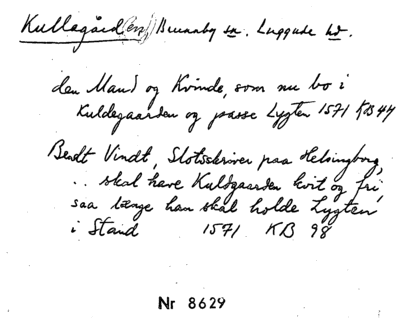 Kullagård (en) Brunnby sn. Luggude hd.
den Mand og Kvinde, som nu bo i
Kuldegaarden og passe Lygten 1571 KB 44
Bendt Vindt, Slotsskriver paa Helsingborg,
.. skal have Kuldgaarden kvit og fri,
saa længe han skal holde Lygten
i Stand 1571 KB 98
Nr 8629